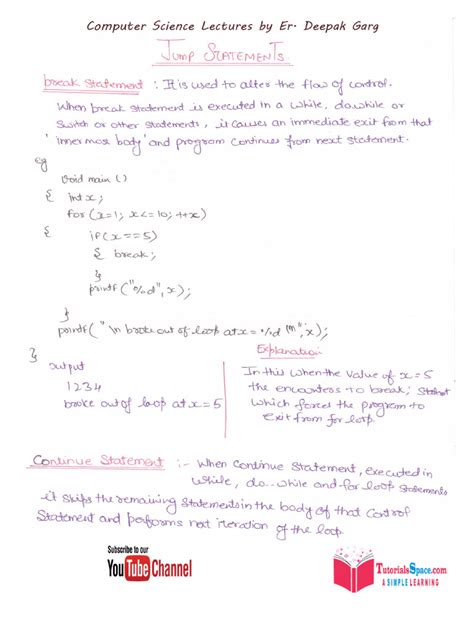 Computer Science Lectures by Er. Deepak Garg
JUMP STATEMENTS
break Statement : It is used to alter the flow of control.
When break statement is executed in a while, do while or
Switch or other statements, it causes an immediate exit from that
'inner most body' and program continues from next statement.
eg
void main ()
{ int x;
for (x=1; x<=10; ++x)
{ if (x==5)
{ break;
}
printf ("%d", x);
}
printf (" \n broke out of loop at x = %d \n", x);
}
output
1234
broke out of loop at x = 5
Explanation
In this when the value of x = 5
the encounters to break;
which forces the program to
exit from for loop.
Continue Statement :- When Continue Statement, executed in
while, do.. while and for loop statements
it skips the remaining statements in the body of that control
Statement and performs next iteration of the loop
Subscribe to our
YouTube Channel
TutorialsSpace.com
A SIMPLE LEARNING